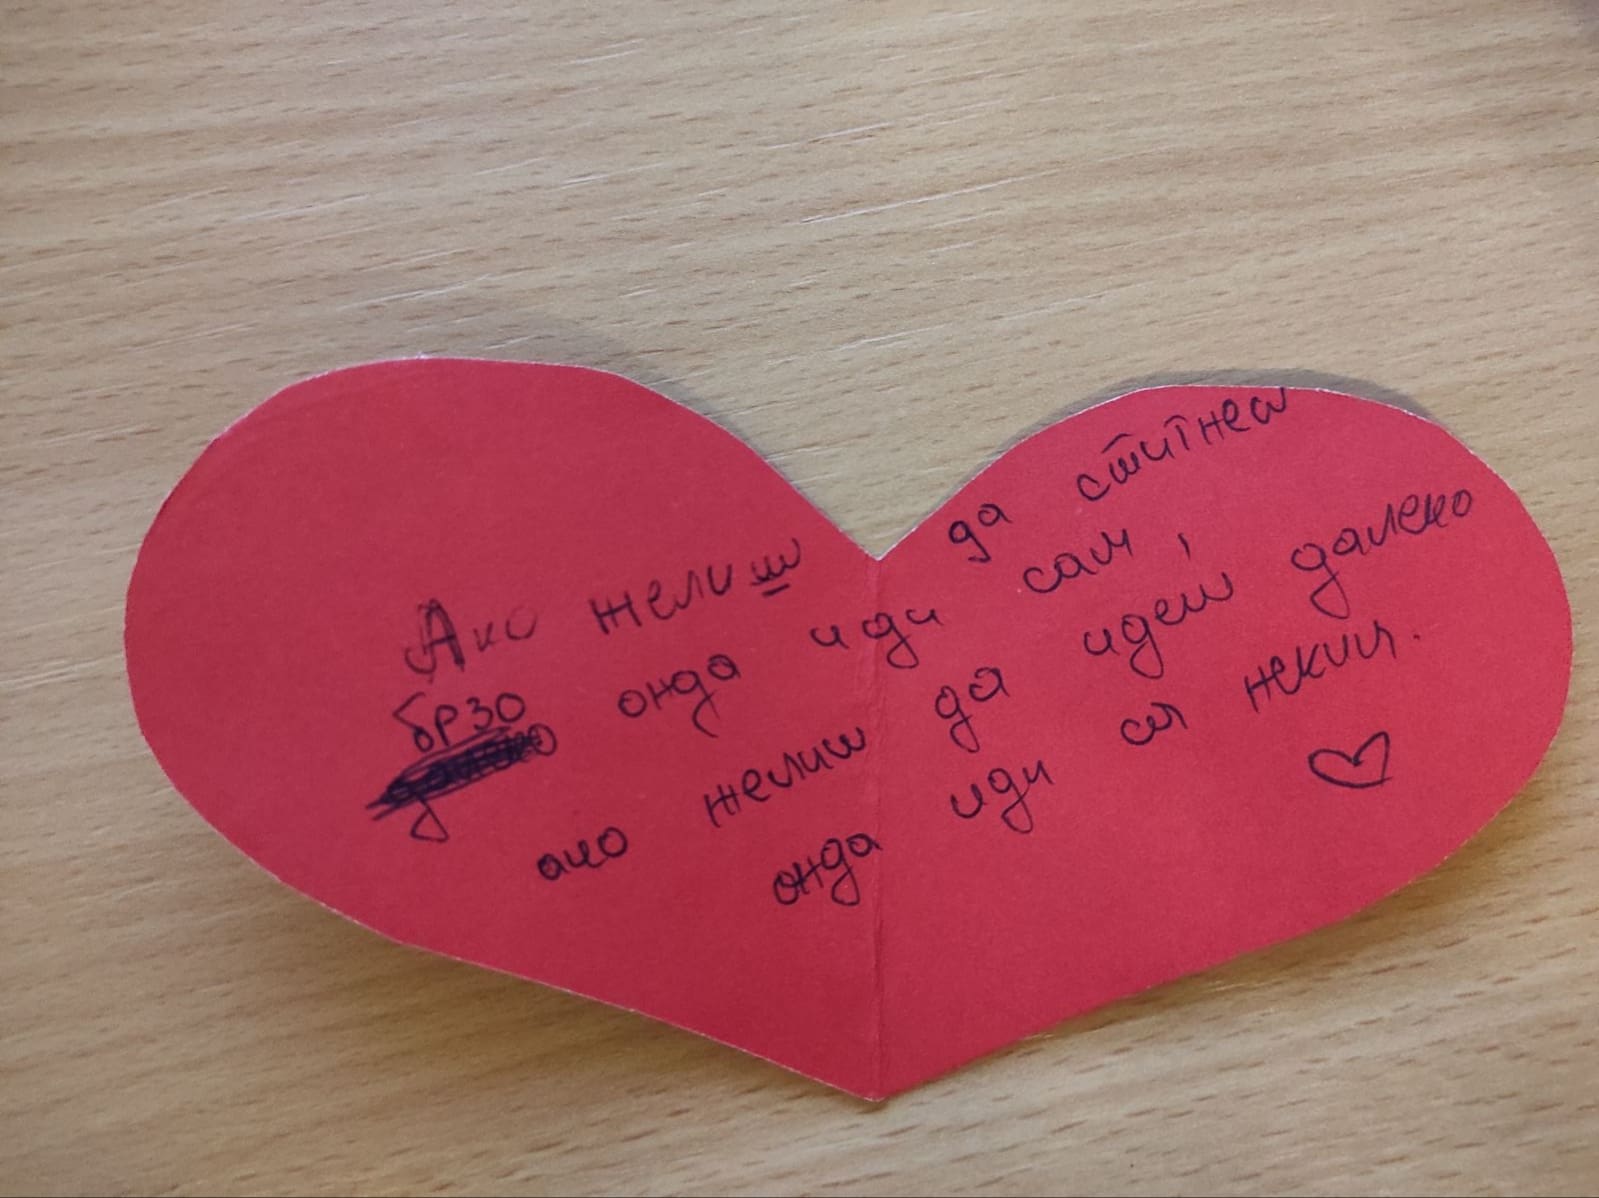 Ако желиш да стигнеш
брзо онда иди сам,
ако желиш да идеш далеко
онда иди са неким.